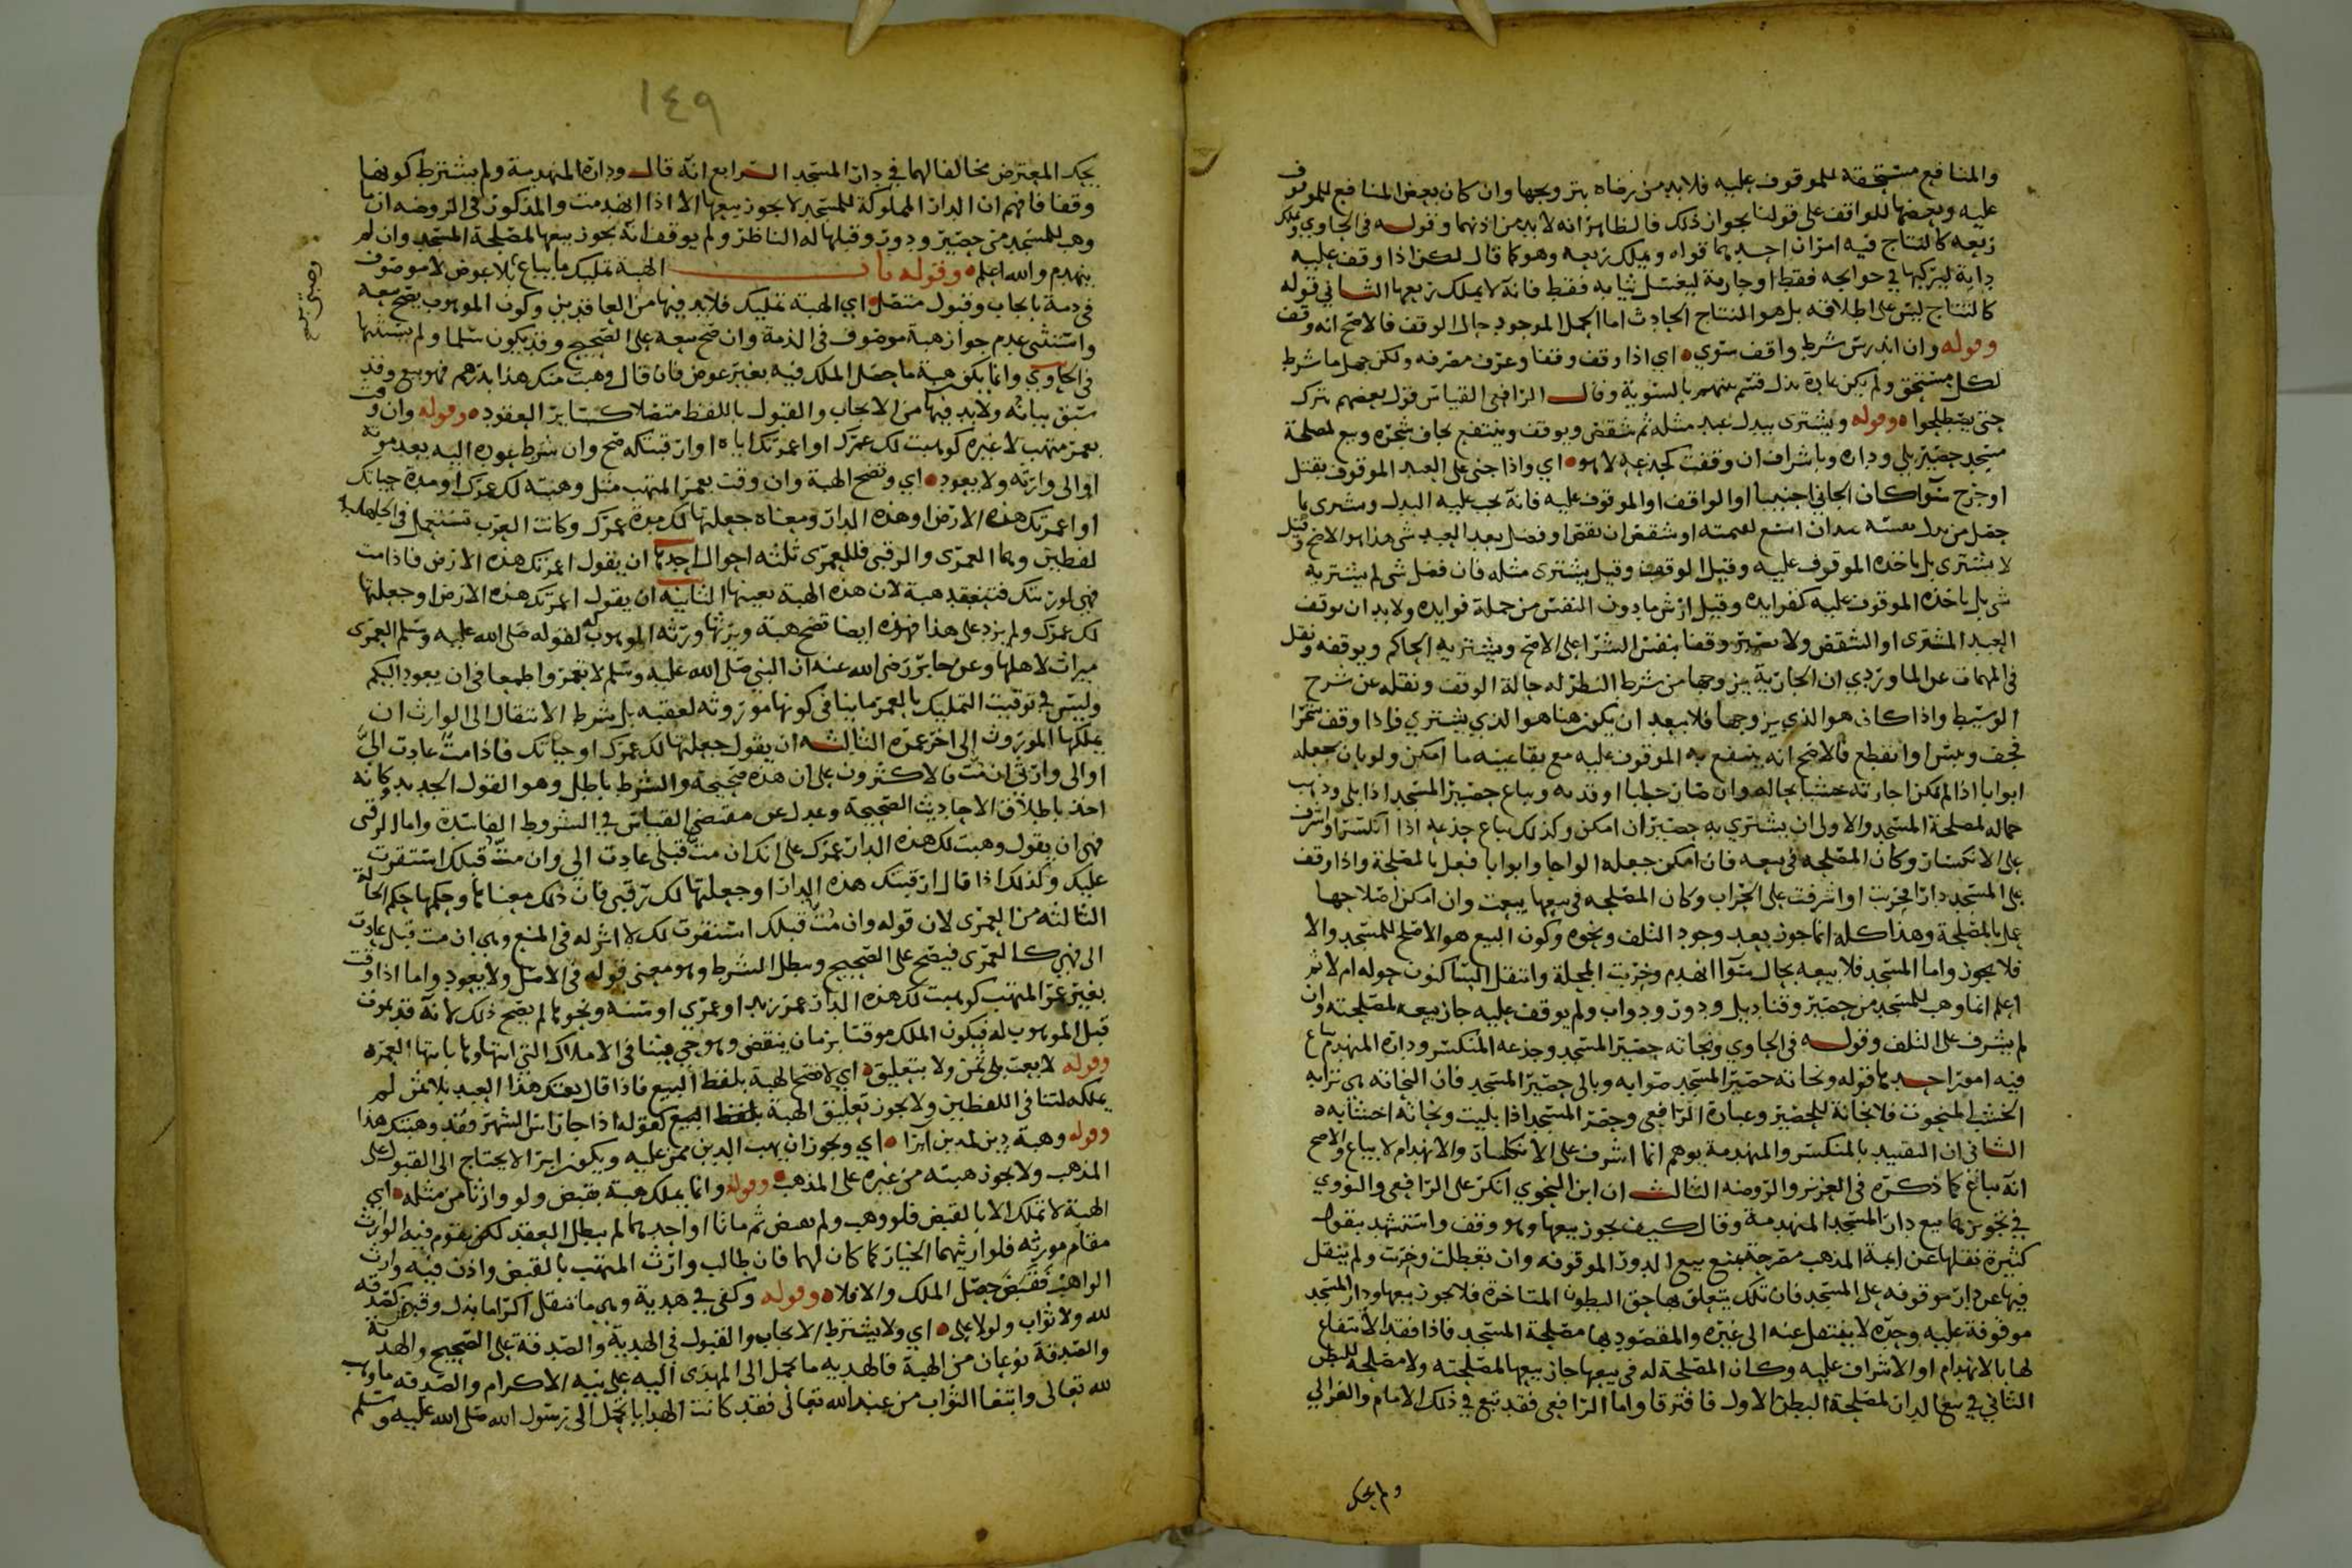 والمنافع مستحقة للموقوف عليه فلابد من رضاه بتزويجها وان كان بعض المنافع للموقوف
عليه وبعضها للواقف على قولنا بجواز ذلك فالظاهر انه لابد من اذنهما وقوله في الحاوي وملك
ريعه كالنتاج فيه امران احدهما قواه ويملك ريعه وهو كما قال لكن اذا وقف عليه
دابة ليركبها في حوايجه فقط او جارية ليغسل ثيابه فقط فانه لا يملك ريعها الثاني قوله
كالنتاج ليس على اطلاقه بل هو النتاج الحادث اما الحمل الموجود حال الوقف فالاصح انه وقف
وقوله وان اندرس شرط واقف سوي اي اذا وقف وقفا وعرف مصرفه ولكن جهل ما شرط
لكل مستحق ولم يكن عادة بذلك قسم بينهم بالسوية وقال الرافعي القياس قول بعضهم يترك
حتى يصطلحوا وقوله ويشترى ببدل عبد مثله ثم شقص ويوقف وينتفع بجاف شجره وبيع لمصلحة
مسجد حصير بلي وداره وباشراف ان وقفت كجذعه لا هو اي واذا جنى على العبد الموقوف بقتل
او جرح سوآ كان الجاني اجنبيا او الواقف او الموقوف عليه فانه يجب عليه البدل ومشرى بما
حصل من بدل نفسه عبد ان اتسع لقيمته او شقص ان نقص او فضل بعد العبد شي هذا هو الاصح وقيل
لا يشترى بل ياخذه الموقوف عليه وقيل الوقف وقيل يشترى مثله فان فضل شي لم يشتر به
شي بل ياخذه الموقوف عليه كفوايده وقيل ارش ما دون النفس من جملة فوايده ولابد ان يوقف
العبد المشترى او الشقص ولا يصير وقفا بنفس الشرا على الاصح ويشتريه الحاكم ويوقفه ونقل
في المهمات عن الماوردي ان الجارية يزوجها من شرط النظر له حالة الوقف ونقله عن شرح
الوسيط واذا كان هو الذي يزوجها فلا يبعد ان يكون هنا هو الذي يشتري فاذا وقف شجرا
فجف ويبس او انقطع فالاصح انه ينتفع به الموقوف عليه مع بقا عينه ما امكن ولو بان جعله
ابوابا اذا لم يمكن اجارته خشبا بحاله وان صار حطبا اوقد به ويباع حصير المسجد اذا بلي وذهب
جماله لمصلحة المسجد والاولى ان يشتري به حصير ان امكن وكذلك يباع جذعه اذا انكسر او اشرف
على الانكسار وكان المصلحة في بيعه فان امكن جعله الواحا وابوابا فعل بالمصلحة واذا وقف
على المسجد دارا فخربت او اشرفت على الخراب وكان المصلحه في بيعها بيعت وان امكن اصلاحها
عمل بالمصلحة وهذا كله انما جوز بعد وجود التلف ونحوه وكون البيع هو الاصلح للمسجد والا
فلا يجوز واما المسجد فلا بيعه بحال سوآ انهدم وخربت المحلة وانتقل الساكنون حوله ام لا ثم
اعلم انما وهب للمسجد من حصير وقناديل ودور ودواب ولم يوقف عليه جاز بيعه لمصلحته وان
لم يشرف على التلف وقوله في الحاوي ونحاته حصير المسجد وجذعه المنكسر وداره المنهدم يباع
فيه امور احدها قوله ونحاته حصير المسجد صوابه وبالي حصير المسجد فان النحاته هي نزابه
الخشب المنحوت فلا نحاتة للحصير وعبارة الرافعي وحصر المسجد اذا بليت ونحاتة اخشابه
الثاني ان التقييد بالمنكسر والمنهدمة يوهم انما اشرف على الانكسار والانهدام لا يباع والاصح
انه يباع كما ذكره في العزيز والروضه الثالث ان ابن النحوي انكر على الرافعي والنووي
في تجويزهما بيع دار المسجد المنهدمة وقال كيف يجوز بيعها وهو وقف واستشهد بنقول
كثيرة نقلها عن ايمة المذهب مصرحة بمنع بيع الدور الموقوفه وان تعطلت وخربت ولم ينقل
فيها عن دار موقوفه على المسجد فان تلك يتعلق بها حق البطون المتاخرة فلا يجوز بيعها ودار المسجد
موقوفة عليه وحده لا ينتقل عنه الى غيره والمقصود بها مصلحة المسجد فاذا فقد الانتفاع
لها بالانهدام او الاشراف عليه وكان المصلحة له في بيعها جاز بيعها لمصلحته ولا مصلحة للبطن
الثاني في بيع الدار لمصلحة البطن الاول فافترقا واما الرافعي فقد تبع في ذلك الامام والغزالي
ولم يحك
١٤٩
يحك المعترض مخالفا لهما في دار المسجد الرابع انه قال وداره المنهدمة ولم يشترط كونها
وقفا فافهم ان الدار المملوكة للمسجد لا يجوز بيعها الا اذا انهدمت والمذكور في الروضه ان ما
وهب للمسجد من حصير ودور وقبلها له الناظر ولم يوقف انه يجوز بيعها لمصلحة المسجد وان لم
ينهدم والله اعلم وقوله باب الهبة تمليك ما يباع بلا عوض لا موصوف
في ذمة بايجاب وقبول متصل اي الهبة تمليك فلابد فيها من العاقدين وكون الموهوب يصح بيعه
واستثنى عدم جواز هبة موصوف في الذمة وان صح بيعه على الصحيح وقد يكون سلما ولم يستثنها
في الحاوي وانما يكون هبة ما حصل الملك فيه بغير عوض فان قال وهبت منك هذا بدرهم فهو بيع وقد
سبق بيانه ولابد فيها من الايجاب والقبول باللفظ متصلا كساير العقود وقوله وان وقت
بعمر متهب لا غيره كوهبت لك عمرك او اعمرتك اياه او ارقبتكه صح وان شرط عوده اليه بعد موته
او الى وارثه ولا يعود اي وتصح الهبة وان وقت بعمر المتهب مثل وهبته لك عمرك او مدة حياتك
او اعمرتك هذه الارض او هذه الدار ومعناه جعلتها لك مدة عمرك وكانت العرب تستعمل في الجاهلية
لفظين وهما العمرى والرقبى فللعمرى ثلثه احوال احدها ان يقول اعمرتك هذه الارض فاذا مت
فهي لورثتك فتنعقد هبة لان هذه الهبة بعينها الثانية ان يقول اعمرتك هذه الارض او جعلتها
لك عمرك ولم يزد على هذا فهذه ايضا تصح هبة ويرثها ورثه الموهوب له لقوله صلى الله عليه وسلم العمرى
ميراث لاهلها وعن جابر رضى الله عنه ان النبي صلى الله عليه وسلم لا تعمروا طمعا في ان يعود اليكم
وليس في توقيت التمليك بالعمر ما ينافي كونها موروثه لعقبه بل شرط الانتقال الى الوارث ان
يملكها الموروث الى اخر عمره الثالثه ان يقول جعلتها لك عمرك او حياتك فاذا مت عادت الي
او الى وارثي ان مت فالاكثرون على ان هذه صحيحة والشرط باطل وهو القول الجديد وكانه
اخذ باطلاق الاحاديث الصحيحة وعدل عن مقتضى القياس في الشروط الفاسدة واما الرقبى
فهي ان يقول وهبت لك هذه الدار عمرك على انك ان مت قبلي عادت الي وان مت قبلك استقرت
عليك وكذلك اذا قال ارقبتك هذه الدار او جعلتها لك رقبى فان ذلك معناها وحكمها حكم الحالة
الثالثه من العمرى لان قوله وان مت قبلك استقرت لك لا اثر له في المنع وهي ان مت قبلي عادت
الي فهي كالعمرى فيصح على الصحيح ويبطل الشرط وهو معنى قوله في الاصل ولا يعود واما اذا وقت
بغير عمر المتهب كوهبت لك هذه الدار عمر زيد او عمري او سنه ونحوها لم يصح ذلك لانه قد يموت
قبل الموهوب له فيكون الملك موقتا بزمان ينقضي وهو حي فينافي الاملاك التي انتهاوها بانتها العمره
وقوله لا بعت بلا ثمن ولا بتعليق اي لا تصح الهبة بلفظ البيع فاذا قال بعتك هذا العبد بلا ثمن لم
يملكه لتنافي اللفظين ولا يجوز تعليق الهبة بلفظ البيع كقوله اذا جا راس الشهر فقد وهبتك هذا
وقوله وهبة دين لمدين ابرا اي ويجوز ان يهب الدين ممن عليه ويكون ابرا لا يحتاج الى القبول على
المذهب ولا يجوز هبته من غيره على المذهب وقوله وانما يملك هبة بقبض ولو وارثا من مثله اي
الهبة لا تملك الا بالقبض فلو وهب ولم يقبض ثم ماتا او احدهما لم يبطل العقد لكن يقوم فيه الوارث
مقام مورثه فلوارثهما الخيار كما كان لهما فان طالب وارث المتهب بالقبض واذن فيه وارث
الواهب فقبض حصل الملك والا فلا وقوله وكفى في هدية وهي ما تنقل اكراما بذل وقبض كصدقه
لله ولا ثواب ولو لاعلى اي ولا يشترط الايجاب والقبول في الهدية والصدقة على الصحيح والهدية
والصدقة نوعان من الهبة فالهديه ما يحمل الى المهدى اليه على نيه الاكرام والصدقه ما وهب
لله تعالى وابتغا الثواب من عند الله تعالى فقد كانت الهدايا تحمل الى رسول الله صلى الله عليه وسلم